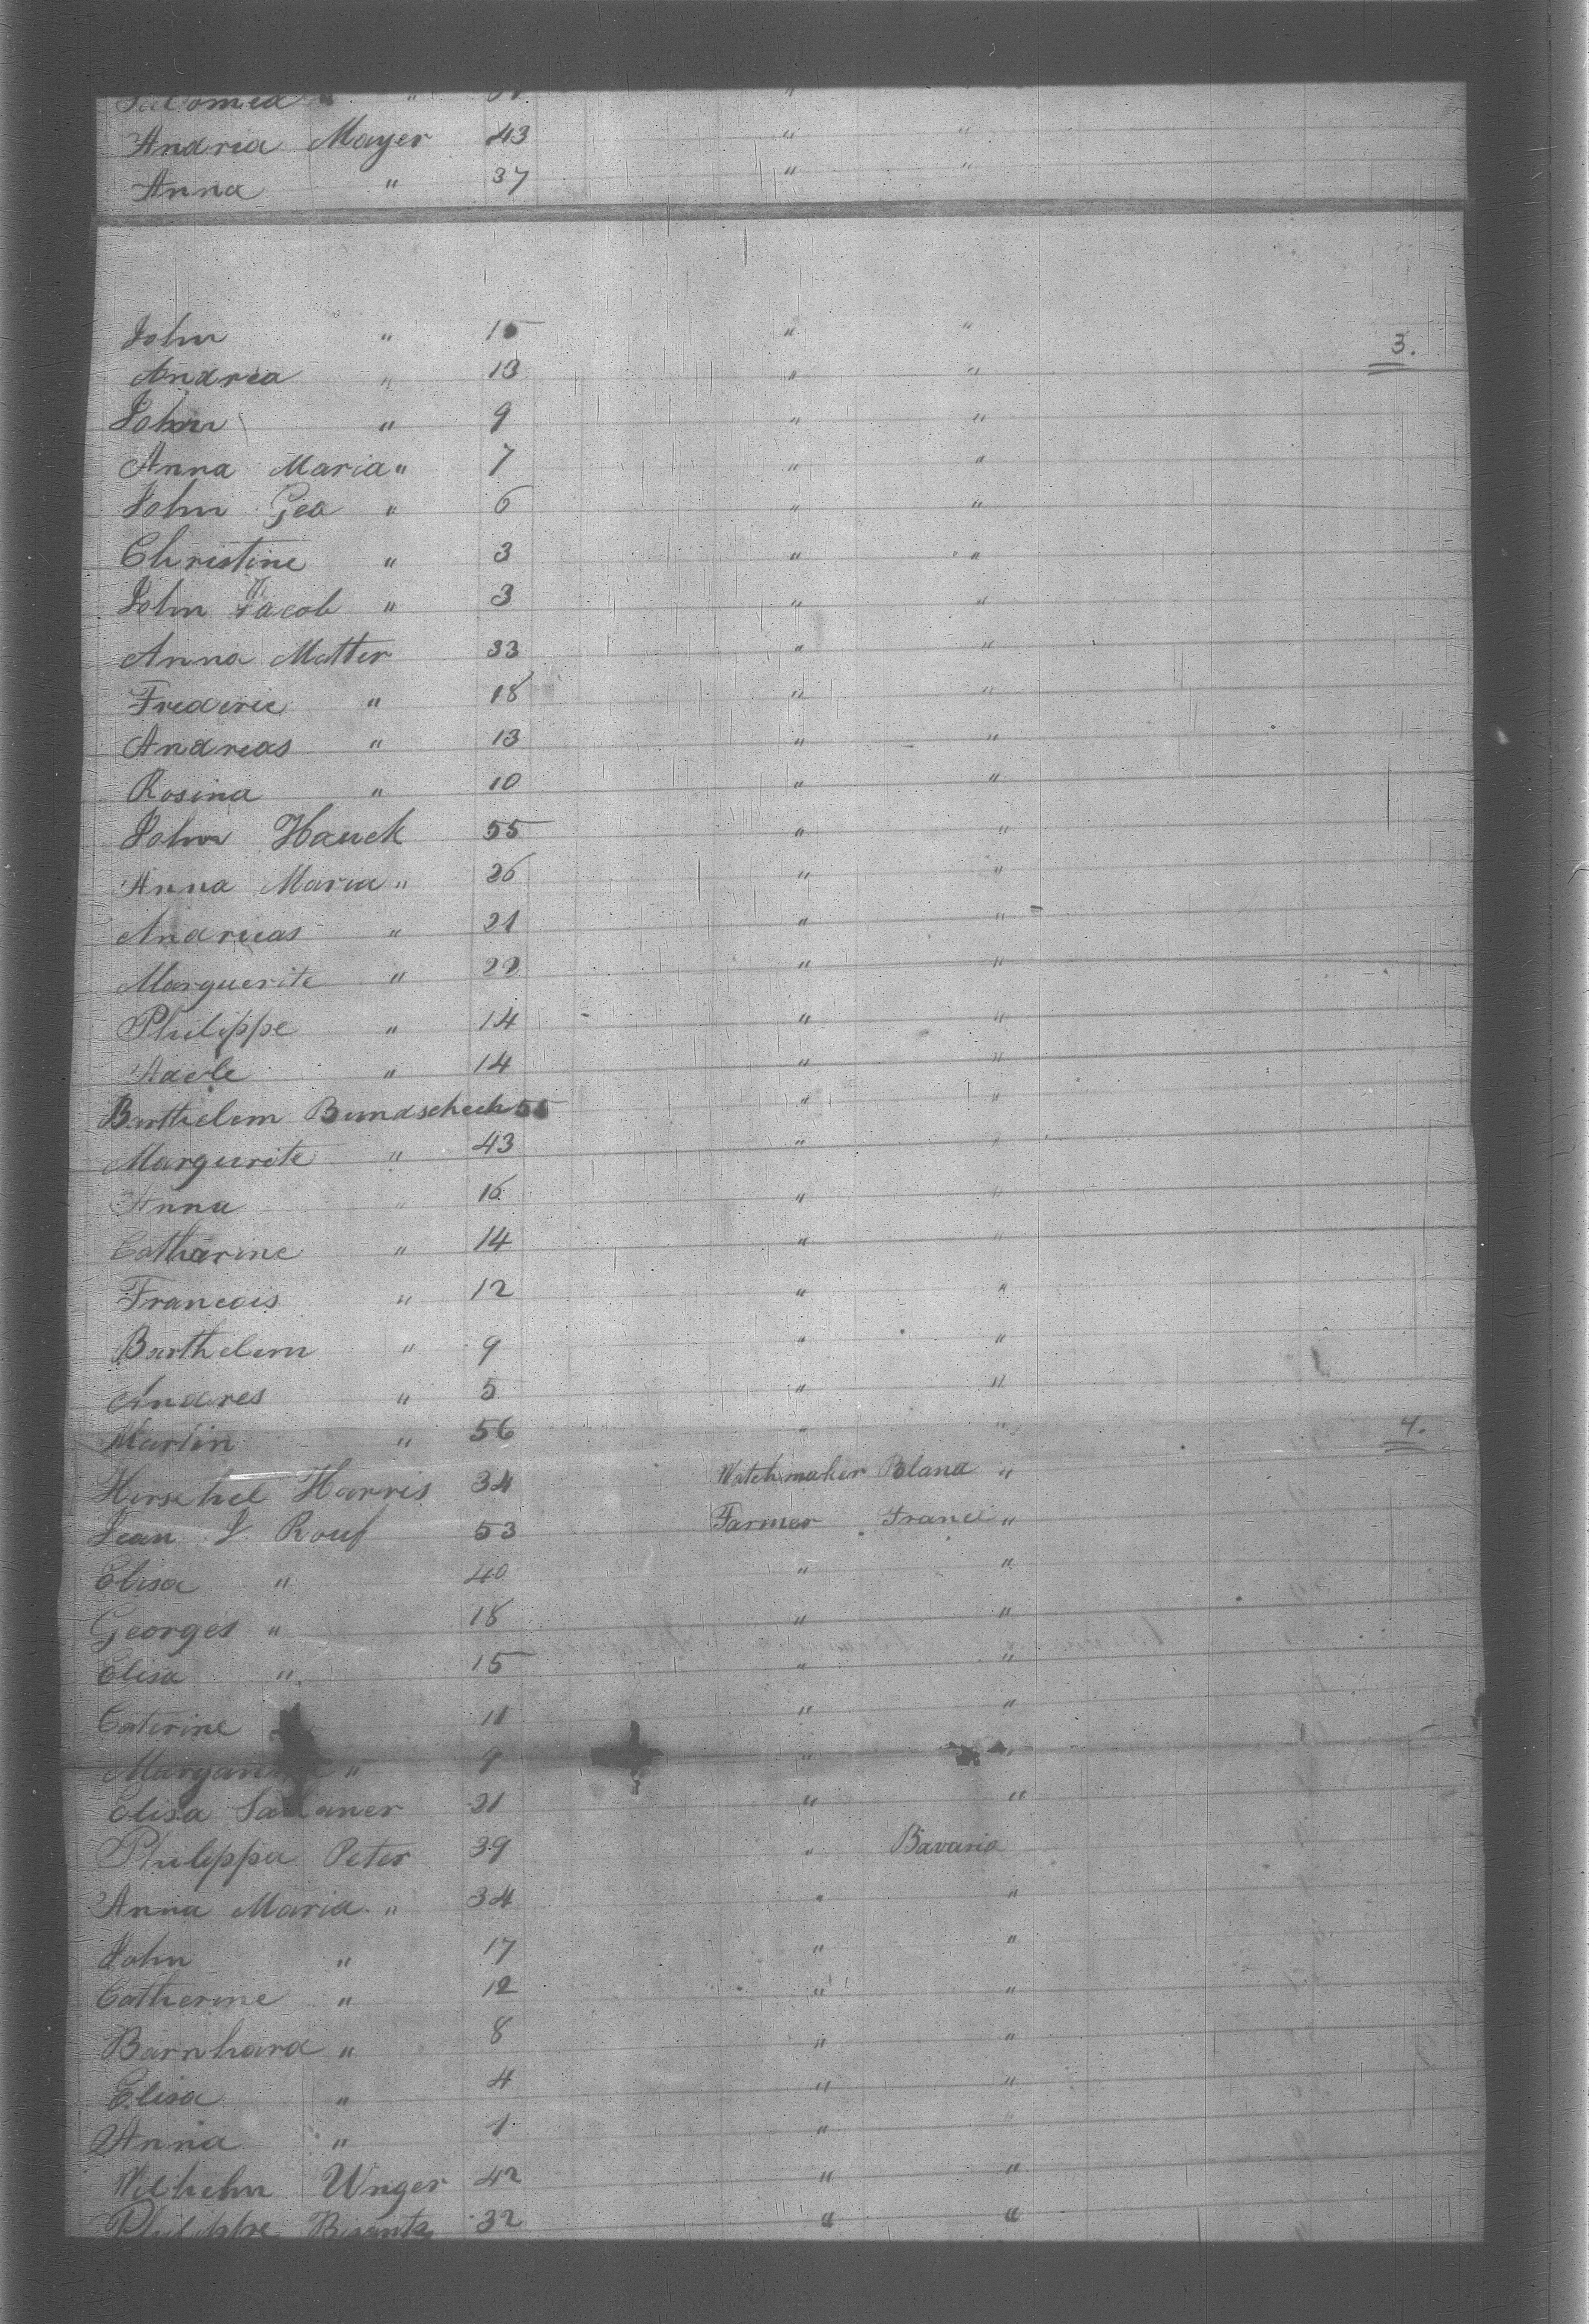 Salomea " "
Andrea Mayer 43 " "
Anna " 37 " "
John " 15 " "
3.
Andrea " 13 " "
John " 9 " "
Anna Maria " 7 " "
John Geo " 6 " "
Christine " 3 " "
John Jacob " 3 " "
Anna Matter 33 " "
Frederic " 18 " "
Andreas " 13 " "
Rosina " 10 " "
John Hauck 55 " "
Anna Maria " 26 " "
Andreas " 21 " "
Marguerite " 22 " "
Philippe " 14 " "
Adele " 14 " "
Barthelem Bundschech 55 " "
Margurite " 43 " "
Anna " 16 " "
Catharine " 14 " "
Francois " 12 " "
Barthelem " 9 " "
Andres " 5 " "
Martin " 56 " "
4.
Hirschel Harris 34 Watchmaker Poland "
Jean J. Rouf 53 Farmer France "
Elisa " 40 " "
Georges " 18 " "
Elisa " 15 " "
Caterine 11 " "
" 9 " "
Elisa 21 " "
Philippa Peter 39 " Bavaria
Anna Maria " 34 " "
John " 17 " "
Catherine " 12 " "
Barnhard " 8 " "
Elisa " 4 " "
Anna " 1 " "
Wilhelm Unger 42 " "
Philippe Bisantz 32 " "